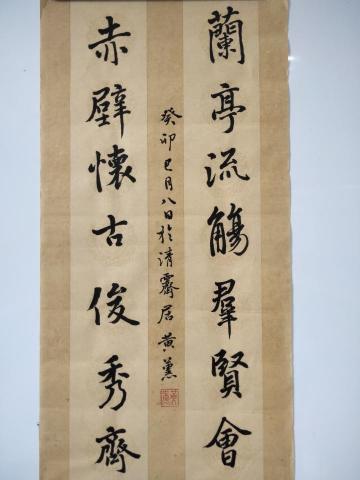 蘭亭流觴羣賢會
赤壁懷古俊秀齊
癸卯巳月八日於清霽居黄薰